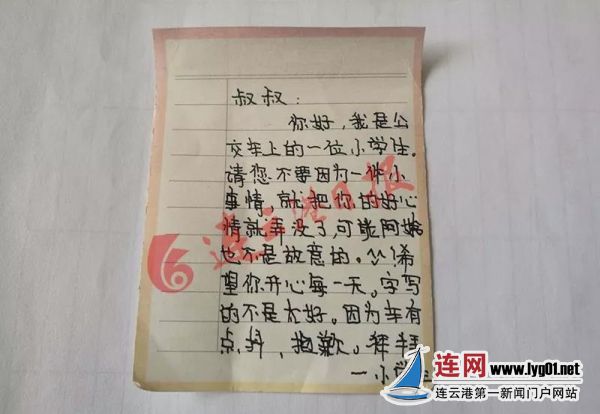 叔叔：
你好，我是公
交车上的一位小学生。
请您不要因为一件小
事情，就把你的好心
情就弄没了，可能阿姨
也不是故意的。^^!希
望你开心每一天。字写
的不是太好。因为车有
点抖，抱歉。拜拜
一小学生
连云港日报
连网 www.lyg01.net
连云港第一新闻门户网站